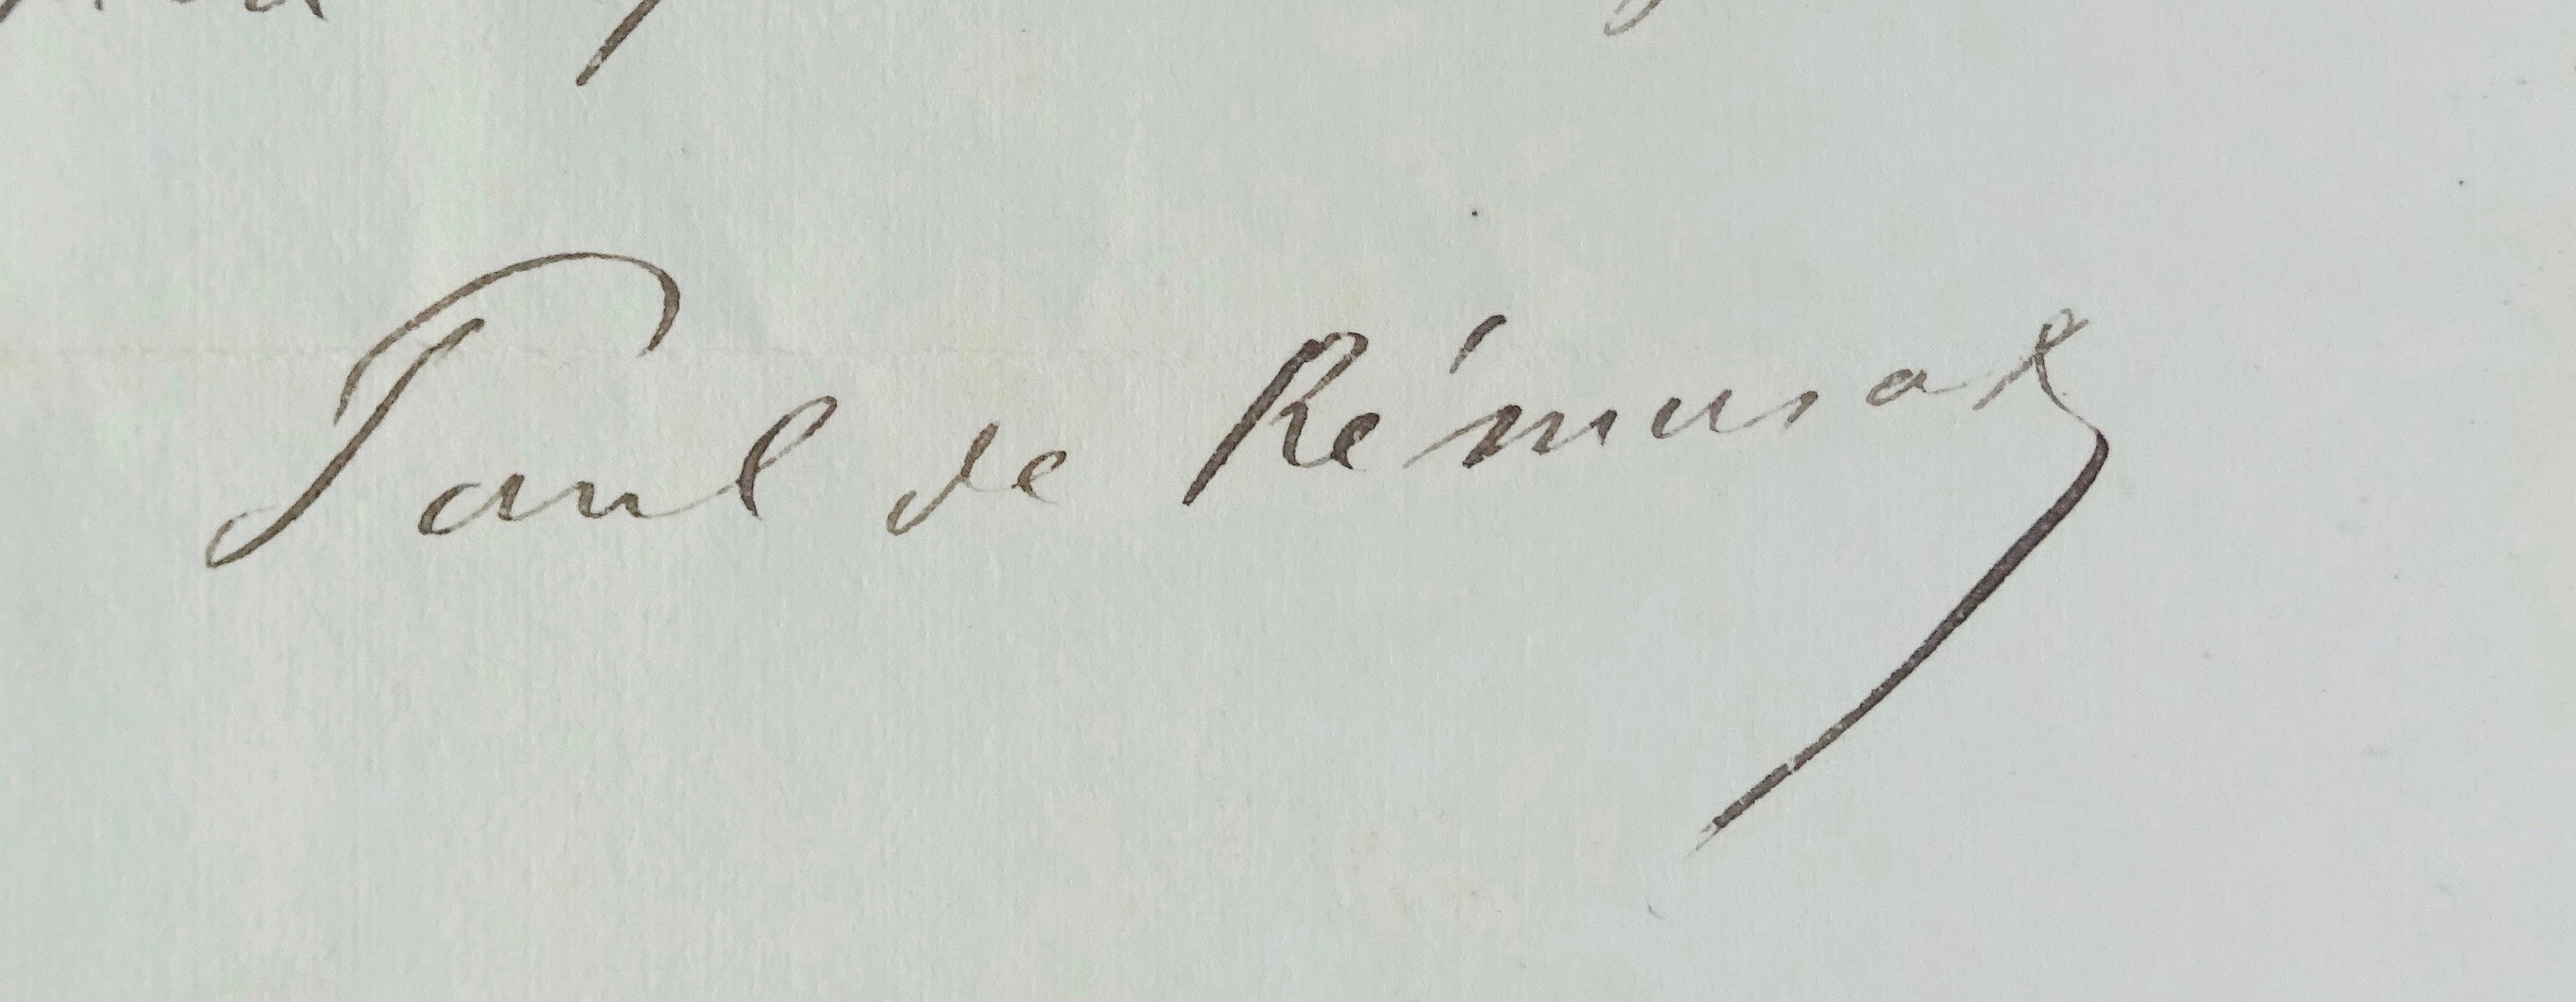 Paul de Rémusat